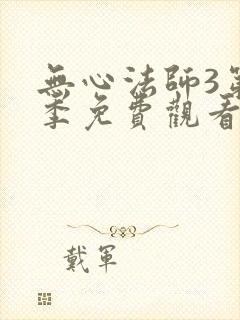 無心法師3第
季免費觀看
戴軍